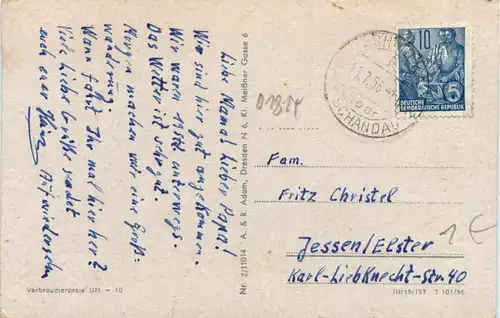 Liebe Mama! Lieber Papa!
Wir sind hier gut angekommen.
Wir waren 1 Std unterwegs.
Das Wetter ist sehr gut.
Morgen machen wir eine Groß-
wanderung.
Wann fahrt Ihr mal hierher?
Viele liebe Grüße sendet
euch euer
Auf wiedersehn
Verbraucherpreis DM – 10
Nr. 2/11014 A. & R. Adam, Dresden N 6, Kl. Meißner Gasse 6
D 1814
SCHANDAU
10
DEUTSCHE
DEMOKRATISCHE REPUBLIK
Fam.
Fritz Christel
Jessen/Elster
Karl-Liebknecht-Str. 40
1 €
III/18/197 T 101/56